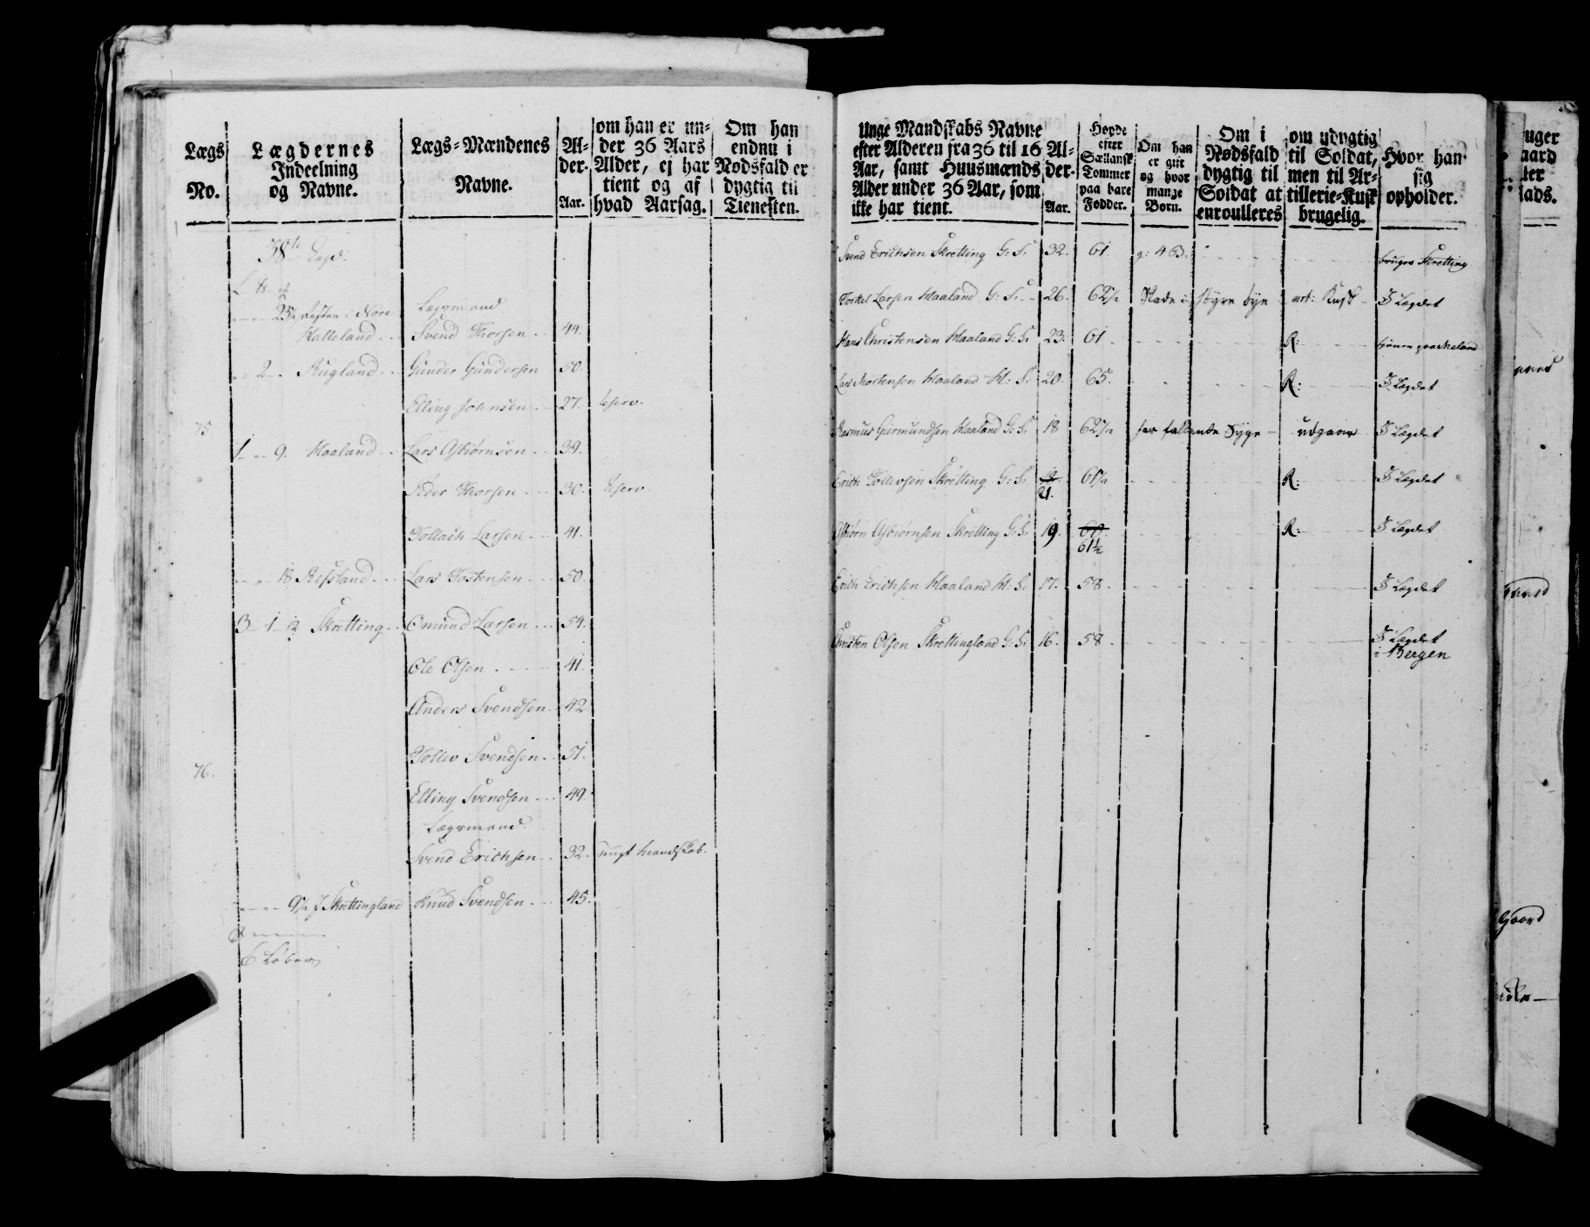 Lægs No.
Lægdernes Indeelning og Navne.
Lægs-Mændenes Navne.
Al-der. Aar.
om han er un-
der 36 Aars
Alder, ej har
tient og af
hvad Aarsag.
Om han
endnu i
Nødsfald er
dygtig til
Tienesten.
38te Lægd.
Lægsmand
Svend Thorsen 44.
2 Rugland Gunder Gundersen 50.
Elling Johnsen 27. reserv.
75
1 9. Haaland Lars Asbiørnsen 39.
Peder Thorsen 30. reserv.
Tollach Larsen 41.
18 Refsland Lars Tostensen 50.
3 1 12 Skretting Omund Larsen 54.
Ole Olsen 41.
Anders Svendsen 42
Tollev Svendsen 51.
76.
Elling Svendsen 49.
Lægsmand
Svend Erichsen 32. ungt Mandskab.
Skrettingland Knud Svendsen 45.
6 Løber
Unge Mandskabs Navne
efter Alderen fra 36 til 16
Aar, samt Huusmænds
Alder under 36 Aar, som
ikke har tient.
Al-der. Aar.
Høyde
efter
Sællansk
Tommer
paa bare
Fødder.
Om han
er gift
og hvor
mange
Børn.
Om i
Nødsfald
dygtig til
Soldat at
enroulleres
om udygtig
til Soldat,
men til Ar-
tillerie-Kusk
brugelig.
Hvor han
sig
opholder.
Svend Erichsen Skretting G: S. 32. 61. g: 4 63. bruger Skretting
Torkel Larsen Haaland G: S. 26. 62½ Skade i høyre øye art: Kusk I Lægdet
Hans Christensen Haaland G: S. 23. 61 R:
Lars Mortensen Haaland H: S. 20. 65. R: I Lægdet
Rasmus Giermundsen Haaland G: S. 18 62½ har faldende Syge udgaaer I Lægdet
Erich Tollevsen Skretting G: S. 21. 61½ R: I Lægdet
Asbiørn Asbiørnsen Skretting G: S. 19 61½ R: I Lægdet
Erich Erichsen Haaland H: S. 17. 58. I Lægdet
Christen Olsen Skrettingland G: S. 16. 58. I Lægdet
i Bergen
uger
aard
ler
lads.
Gaard